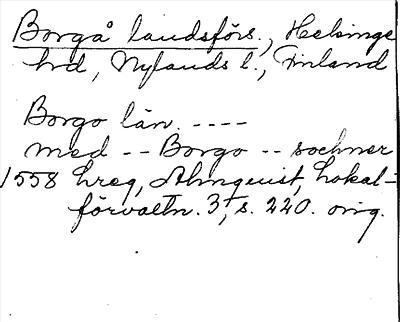 Borgå landsförs., Helsinge
hrd, Nylands l., Finland
Borgo län. ----
med -- Borgo -- sochner
1558 hreg, Almquist, Lokal-
förvaltn. 3, s. 220. orig.